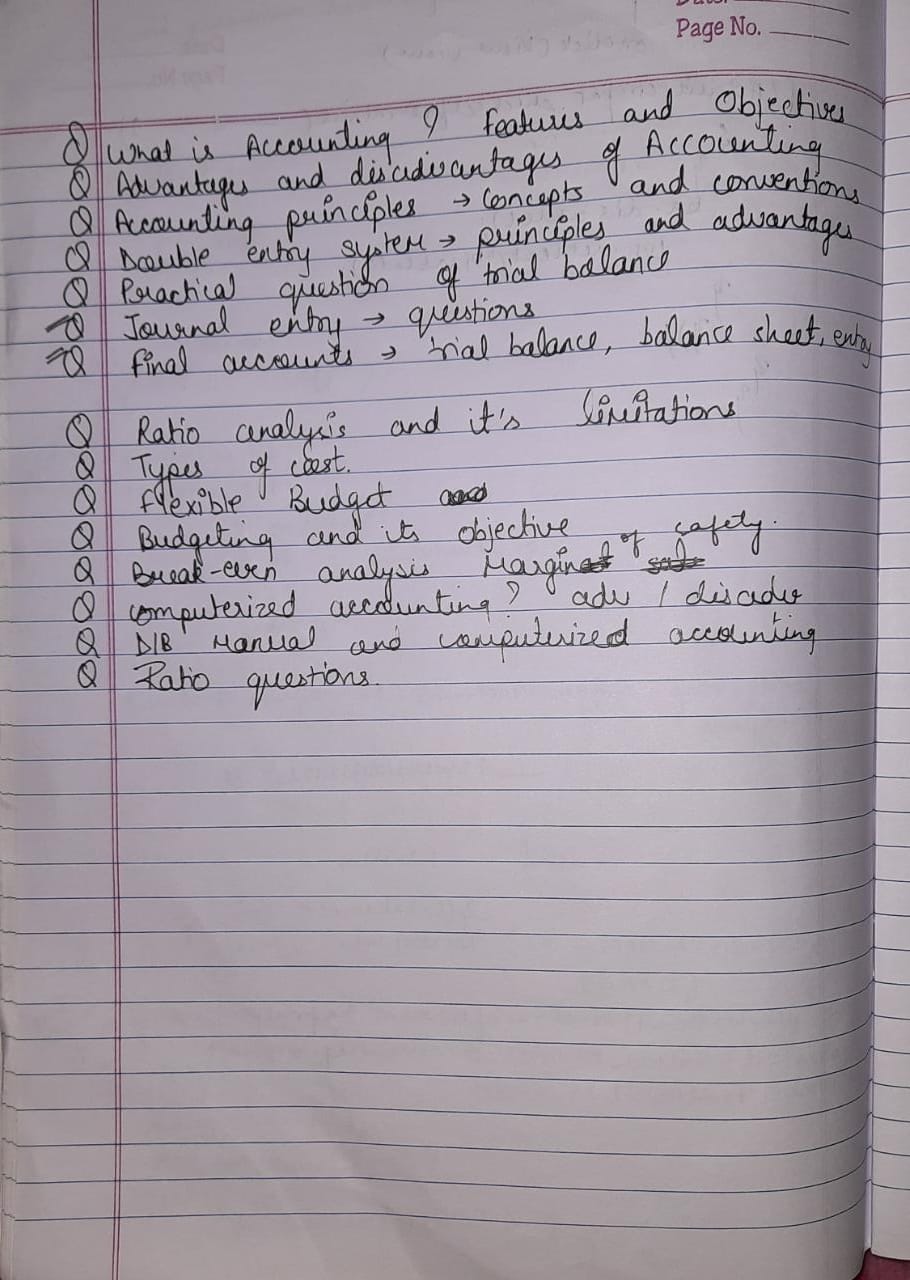 Page No.
Q What is Accounting? Features and Objectives
Q Advantages and disadvantages of Accounting
Q Accounting principles → concepts and conventions
Q Double entry system → principles and advantages
Q Practical question of trial balance
Q Journal entry → questions
Q final accounts → trial balance, balance sheet, entry
Q Ratio analysis and it's limitations
Q Types of cost.
Q flexible Budget
Q Budgeting and its objective
Q Break-even analysis Margin of safety.
Q computerized accounting? adv / disadv
Q D/B Manual and computerized accounting
Q Ratio questions.